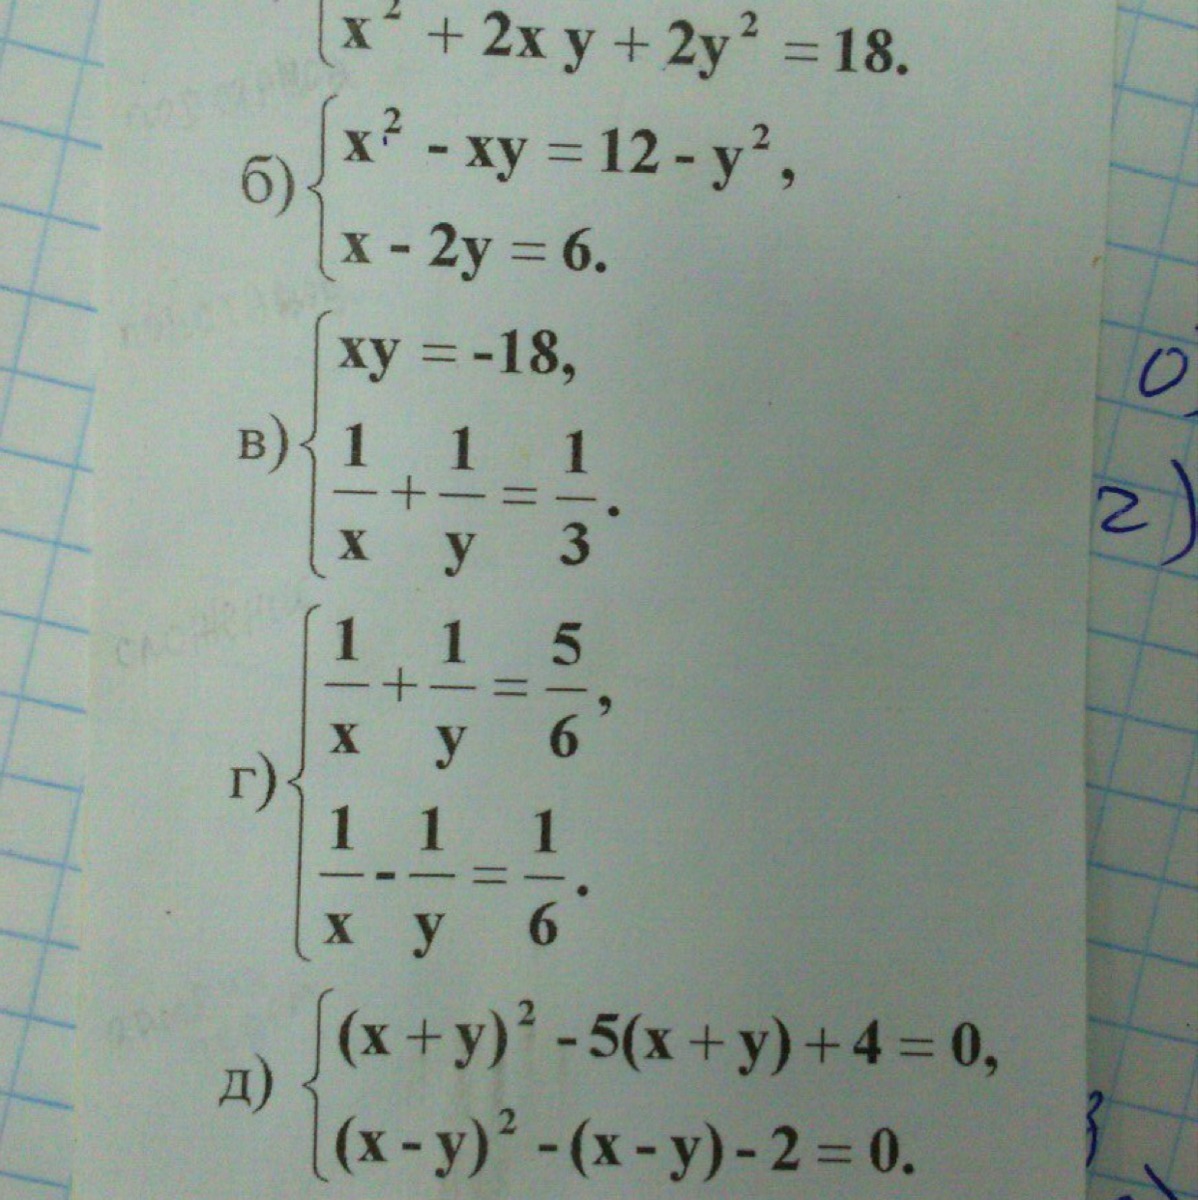 x² + 2x y + 2y² = 18.
б) { x² - xy = 12 - y²,
x - 2y = 6.
в) { xy = -18,
1/x + 1/y = 1/3.
г) { 1/x + 1/y = 5/6,
1/x - 1/y = 1/6.
д) { (x + y)² - 5(x + y) + 4 = 0,
(x - y)² - (x - y) - 2 = 0.
0
2)